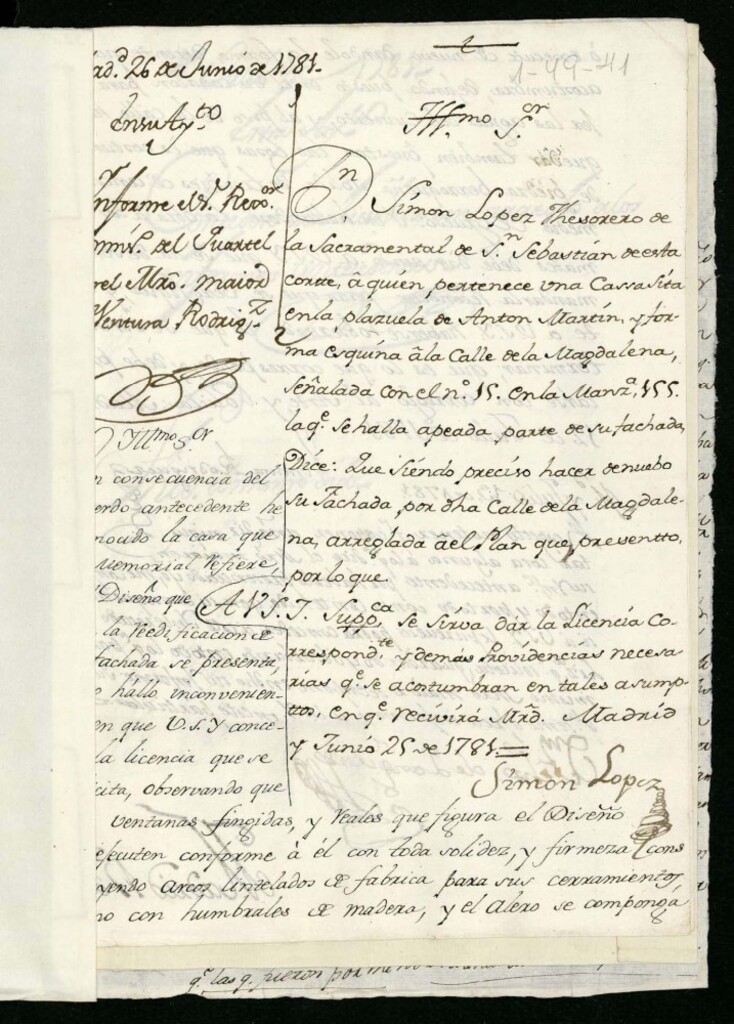 ad.d 26 de Junio de 1781.
1-49-41
en su Ay.to
Yll.mo S.or
D.n Simon Lopez Thesorero de
la Sacramental de S.n Sebastián de esta
corte, â quien pertenece vna Cassa sita
en la plazuela de Anton Martin, y for-
ma esquina â la Calle de la Magdalena,
señalada con el n.o 15. en la Manz.a 155.
la q.e se halla apeada parte de su fachada,
Dice: Que siendo preciso hacer de nuebo
su Fachada, por dha Calle de la Magdale-
na, arreglada âel Plan que presentto,
por lo que
A V.S.I. Supp.ca se sirva dár la Licencia Co-
rrespond.te y demás Providencias necesa
rias q.e se acostumbran en tales asump-
ttos, en q.e recivirá Mrd. Madrid
y Junio 25 de 1781.
Simon Lopez
nforme el S.r Rexi.or
del Quartel
el Mro. maior
Ventura Rodrig.z
Yll.mo S.or
n consecuencia del
erdo antecedente he
nocido la casa que
Memorial refiere,
Diseño que
la reedificacion de
fachada se presenta,
o hallo inconvenien-
en que V.S.Y conce-
la licencia que se
cita, observando que
ventanas fingidas, y reales que figura el Diseño
ejecuten conforme à él con toda solidez, y firmeza, cons
yendo arcos lintelados de fabrica para sus cerramientos,
no con humbrales de madera, y el alero se componga
q.e las q. fueron por